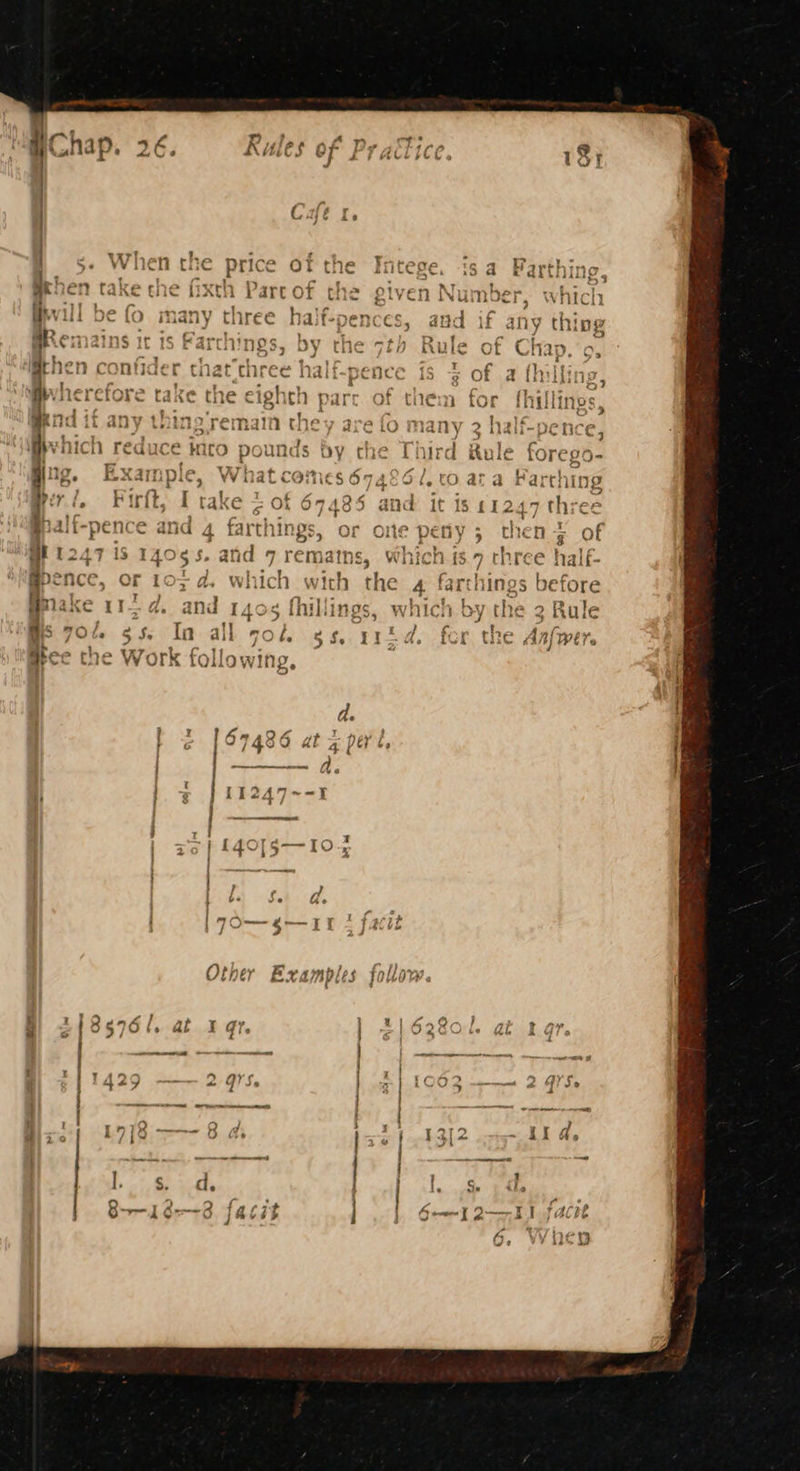 Chap. 26. Rules of Practice. 181
Case 1.
5. When the price of the Intege. is a Farthing,
then take the ſixth Part of the given Number, which
will be ſo many three half-pences, and if any thing
Remains it is Farthings, by the 7th Rule of Chap. 9,
then conſider that three half-pence is ⅛ of a ſhilling,
wherefore take the eighth part of them for ſhillings,
and if any thing remain they are ſo many 3 half-pence,
which reduce into pounds by the Third Rule forego-
ing. Example, What comes 67486 l. to at a Farthing
per l. Firſt, I take ⅙ of 67486 and it is 11247 three
half-pence and 4 farthings, or one peny; then ⅛ of
11247 is 1405 s. and 7 remains, which is 7 three half-
pence, or 10½ d. which with the 4 farthings before
make 11½ d. and 1405 ſhillings, which by the 3 Rule
is 70l. 5 s. In all 70l. 5 s. 11½ d. for the Anſwer.
See the Work following.
d.
⅙ | 67486 at ¼ per l.
d.
⅛ | 11247--1
1/20 | 140|5—10½
l. s. d.
70—5—11½ facit
Other Examples follow.
⅙ | 8576 l. at 1 qr. | ⅙ | 6380 l. at 1 qr.
⅛ | 1429 —— 2 qrs. | ⅛ | 1063 —— 2 qrs.
1/20 | 17|8 —— 8 d. | 1/20 | 13|2 —— 11 d.
l. s. d. | l. s. d.
8—18—8 facit | 6—12—11 facit
6. When